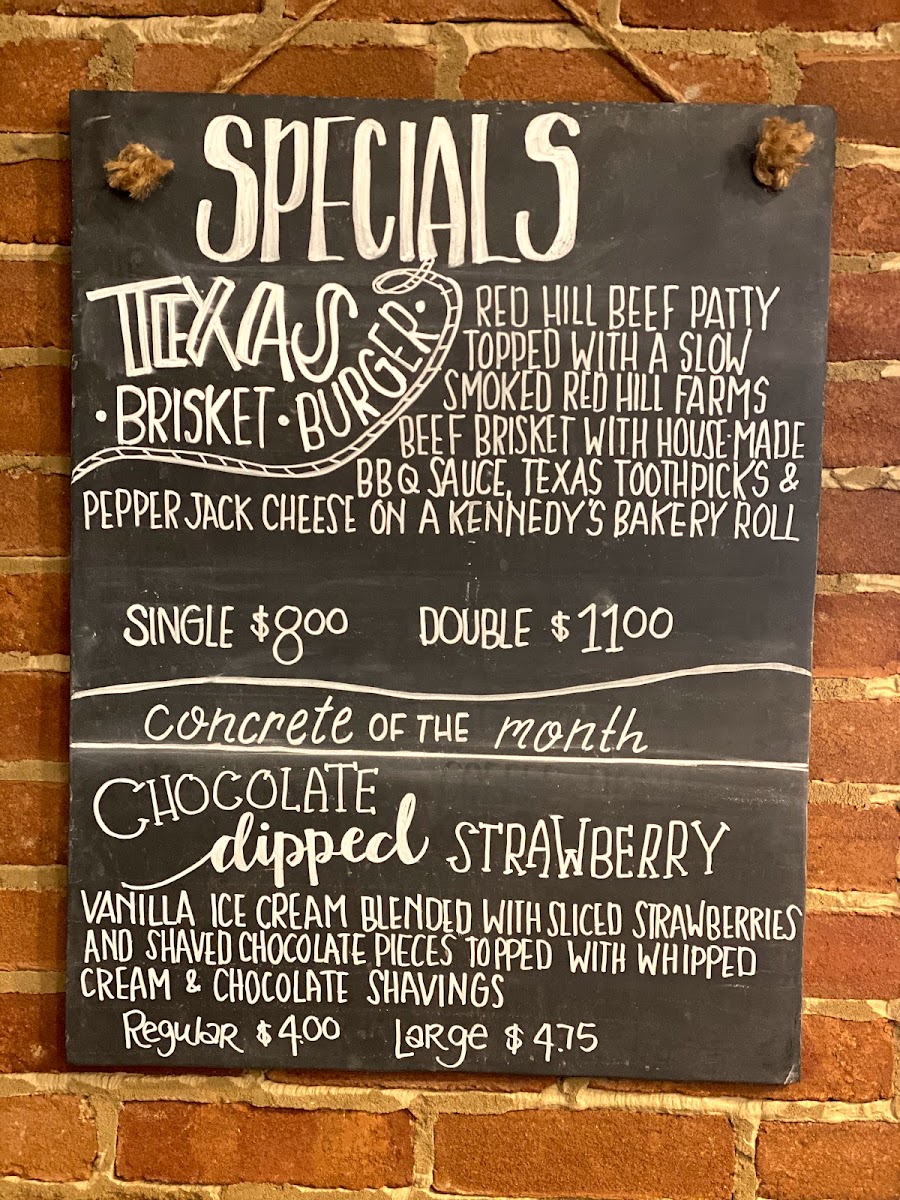 SPECIALS
TEXAS
• BRISKET • BURGER •
RED HILL BEEF PATTY
TOPPED WITH A SLOW
SMOKED RED HILL FARMS
BEEF BRISKET WITH HOUSE-MADE
BBQ SAUCE, TEXAS TOOTHPICKS &
PEPPER JACK CHEESE ON A KENNEDY'S BAKERY ROLL
SINGLE $800 DOUBLE $1100
concrete OF THE month
CHOCOLATE
dipped STRAWBERRY
VANILLA ICE CREAM BLENDED WITH SLICED STRAWBERRIES
AND SHAVED CHOCOLATE PIECES TOPPED WITH WHIPPED
CREAM & CHOCOLATE SHAVINGS
Regular $4.00 Large $4.75